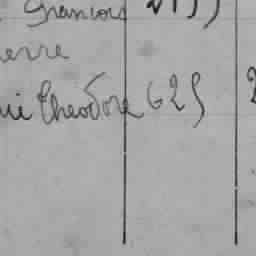 Francois
erre
ui Theodore 625